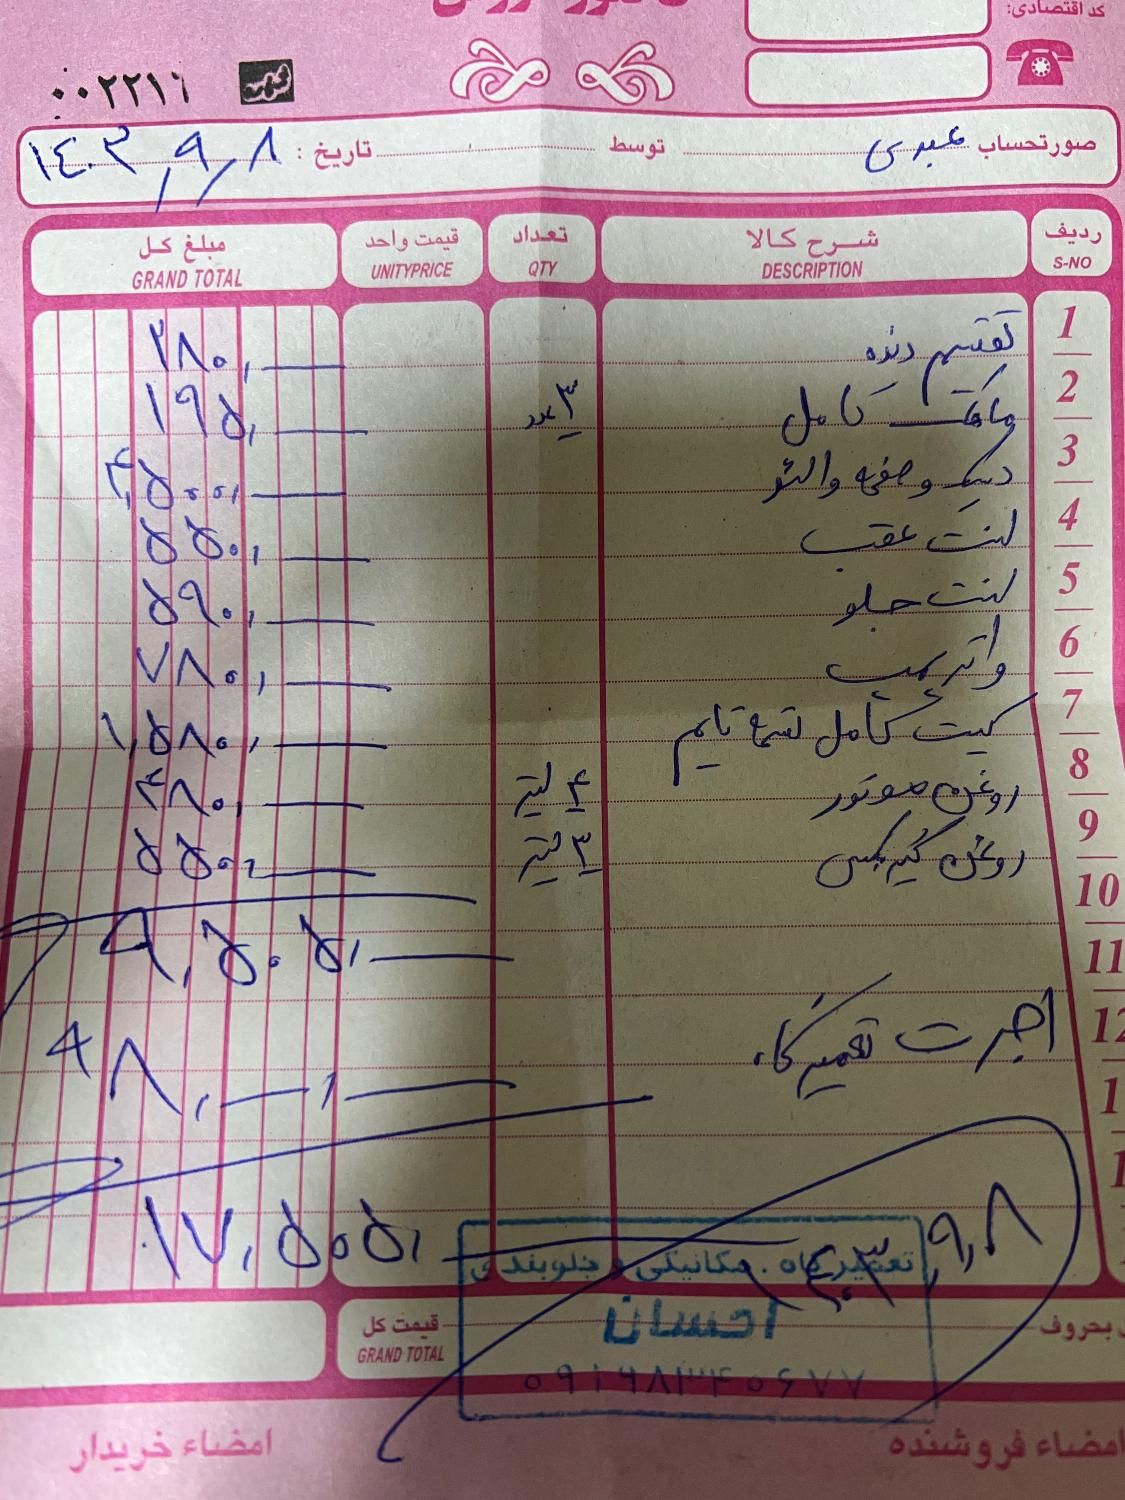 کد اقتصادی:
۰۰۲۲۱۶
صورتحساب عبدی توسط تاریخ : ۱۴۰۳/۹/۸
ردیف S-NO شرح کالا DESCRIPTION تعداد QTY قیمت واحد UNITYPRICE مبلغ کل GRAND TOTAL
1 دنده ۲۸۰,
2 کامل ۳ عدد ۱۹۵,
3 دیسک و صفحه والئو ۴,۵۰۰,
4 لنت عقب ۵۵۰,
5 لنت جلو ۵۹۰,
6 واترپمپ ۷۸۰,
7 کیت کامل تسمه تایم ۱,۵۸۰,
8 روغن موتور ۴ لیتر ۴۸۰,
9 روغن گیربکس ۳ لیتر ۵۵۰,
10
11 ۹,۵۰۵,
12 اجرت تعمیرگاه ۸,
۱۷,۵۰۵,
۱۴۰۳,۹,۸
تعمیرگاه . مکانیکی و جلوبندی
احسان
قیمت کل GRAND TOTAL
بحروف
امضاء فروشنده امضاء خریدار